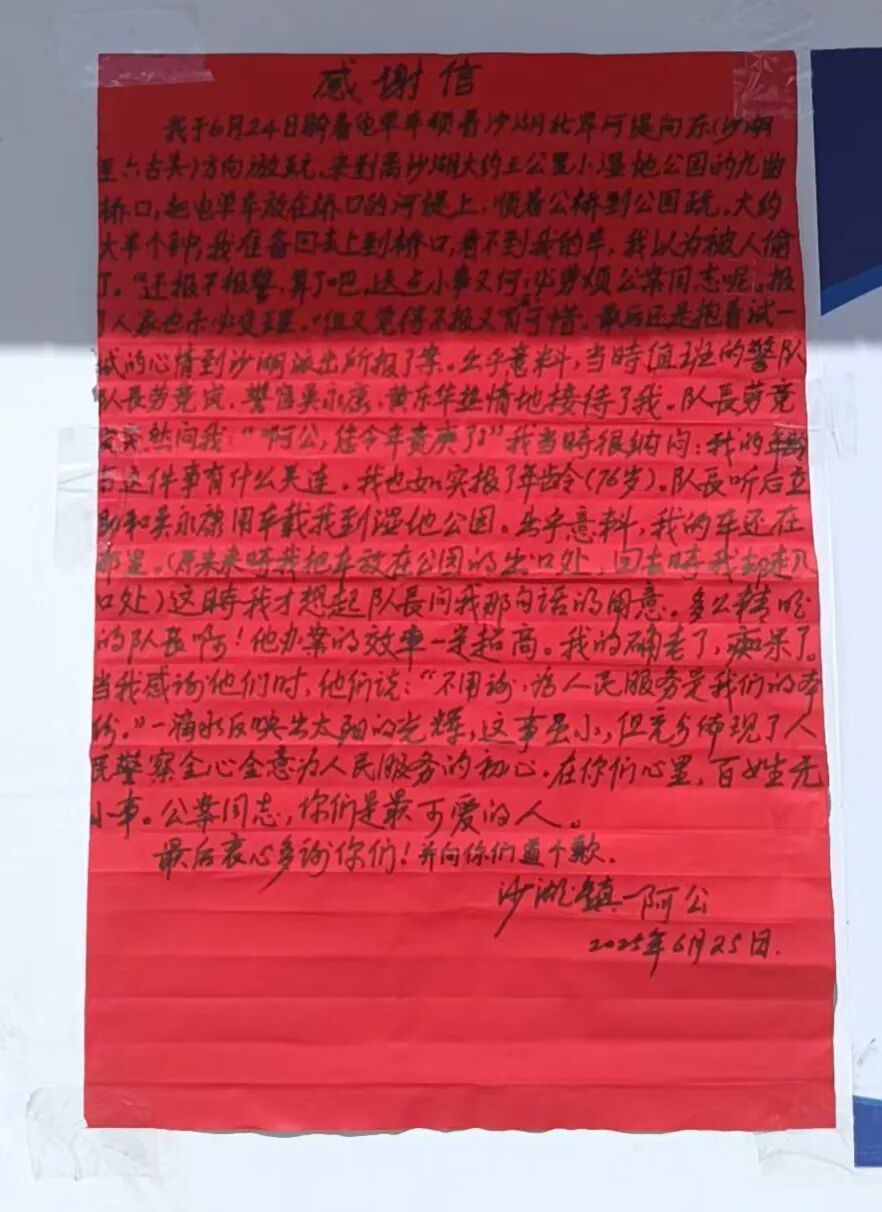 感谢信
我于6月24日骑着电单车顺着沙湖北岸河堤向东(沙湖
至六古关)方向游玩。来到离沙湖大约三公里小湿地公园的九曲
桥口,把电单车放在桥口的河堤上,顺着公桥到公园玩。大约
大半个钟,我准备回去上到桥口,看不到我的车,我以为被人偷
了。“还报不报警,算了吧,这点小事又何必劳烦公案同志呢。报
了人家也未必受理。”但又觉得不报又有可惜。最后还是抱着试一
试的心情到沙湖派出所报了案。出乎意料,当時值班的警队
队長劳竞
警官吴永康、黄东华热情地接待了我。队長劳竞
突然问我:“啊公,您今年贵庚了”我当時很纳闷:我的年龄
与这件事有什么关连。我也如实报了年龄(76岁)。队長听后立
即和吴永康用车载我到湿地公园。出乎意料,我的车还在
那里。(原来来時我把车放在公园的出口处,回去時我却走入
口处)这時我才想起队長问我那句话的用意。多么精明
的队長啊!他办案的效率一定超高。我的确老了,痴呆了。
当我感谢他们时,他们说:“不用谢,为人民服务是我们的本
份。”一滴水反映出太阳的光辉,这事虽小,但充分体现了人
民警察全心全意为人民服务的初心。在你们心里,百姓无
小事。公案同志,你们是最可爱的人。
最后衷心多谢你们!并向你们道个歉。
沙湖镇一阿公
2025年6月25日.